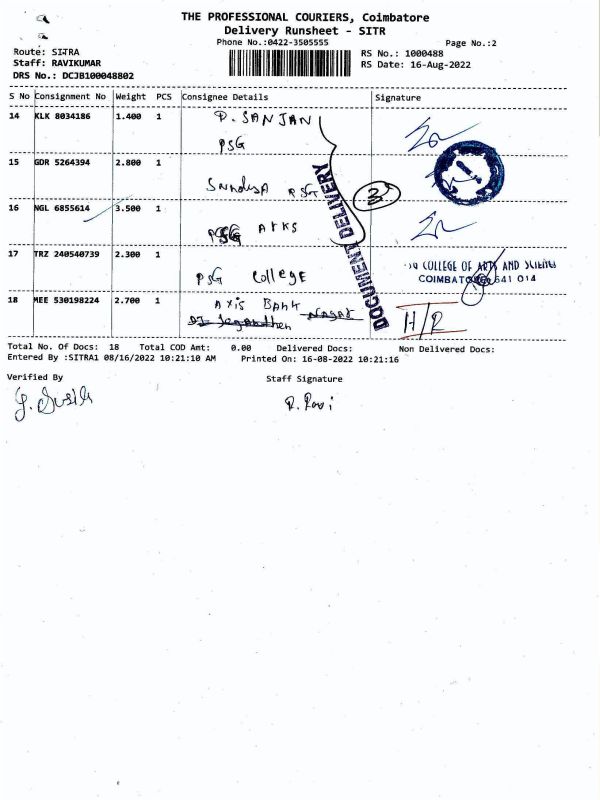 THE PROFESSIONAL COURIERS, Coimbatore
Delivery Runsheet - SITR
Phone No.:0422-3505555
Page No.:2
Route: SITRA
RS No.: 1000488
Staff: RAVIKUMAR
RS Date: 16-Aug-2022
DRS No.: DCJB100048802
S No Consignment No Weight PCS Consignee Details Signature
14 KLK 8034186 1.400 1 P. SANJAN
PSG
15 GDR 5264394 2.800 1
PSG
DOCUMENT DELIVERY
3
16 NGL 6855614 3.500 1
PSG ARKS
17 TRZ 240540739 2.300 1
PSG COllEgE
COLLEGE OF ARTS AND SCIENCE
COIMBATORE 641 014
18 MEE 530198224 2.700 1 AXIS BANK
H/R
Total No. Of Docs: 18 Total COD Amt: 0.00 Delivered Docs: Non Delivered Docs:
Entered By :SITRA1 08/16/2022 10:21:10 AM Printed On: 16-08-2022 10:21:16
Verified By Staff Signature
R. Ravi